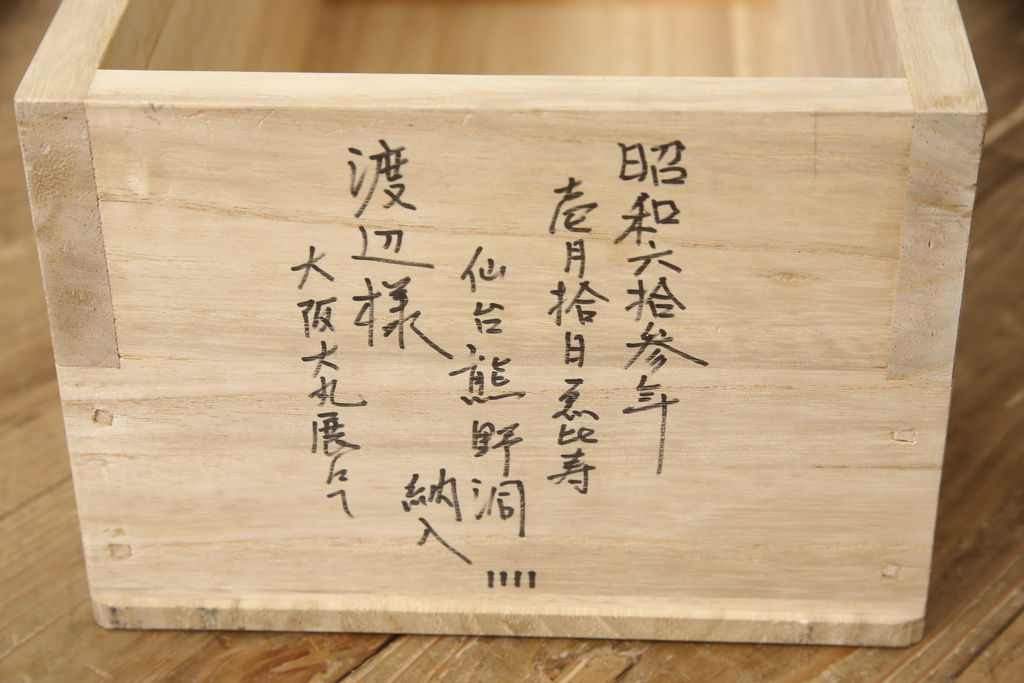 昭和六拾参年
壱月拾日恵比寿
仙台熊野洞
納入
渡辺様
大阪大丸展にて